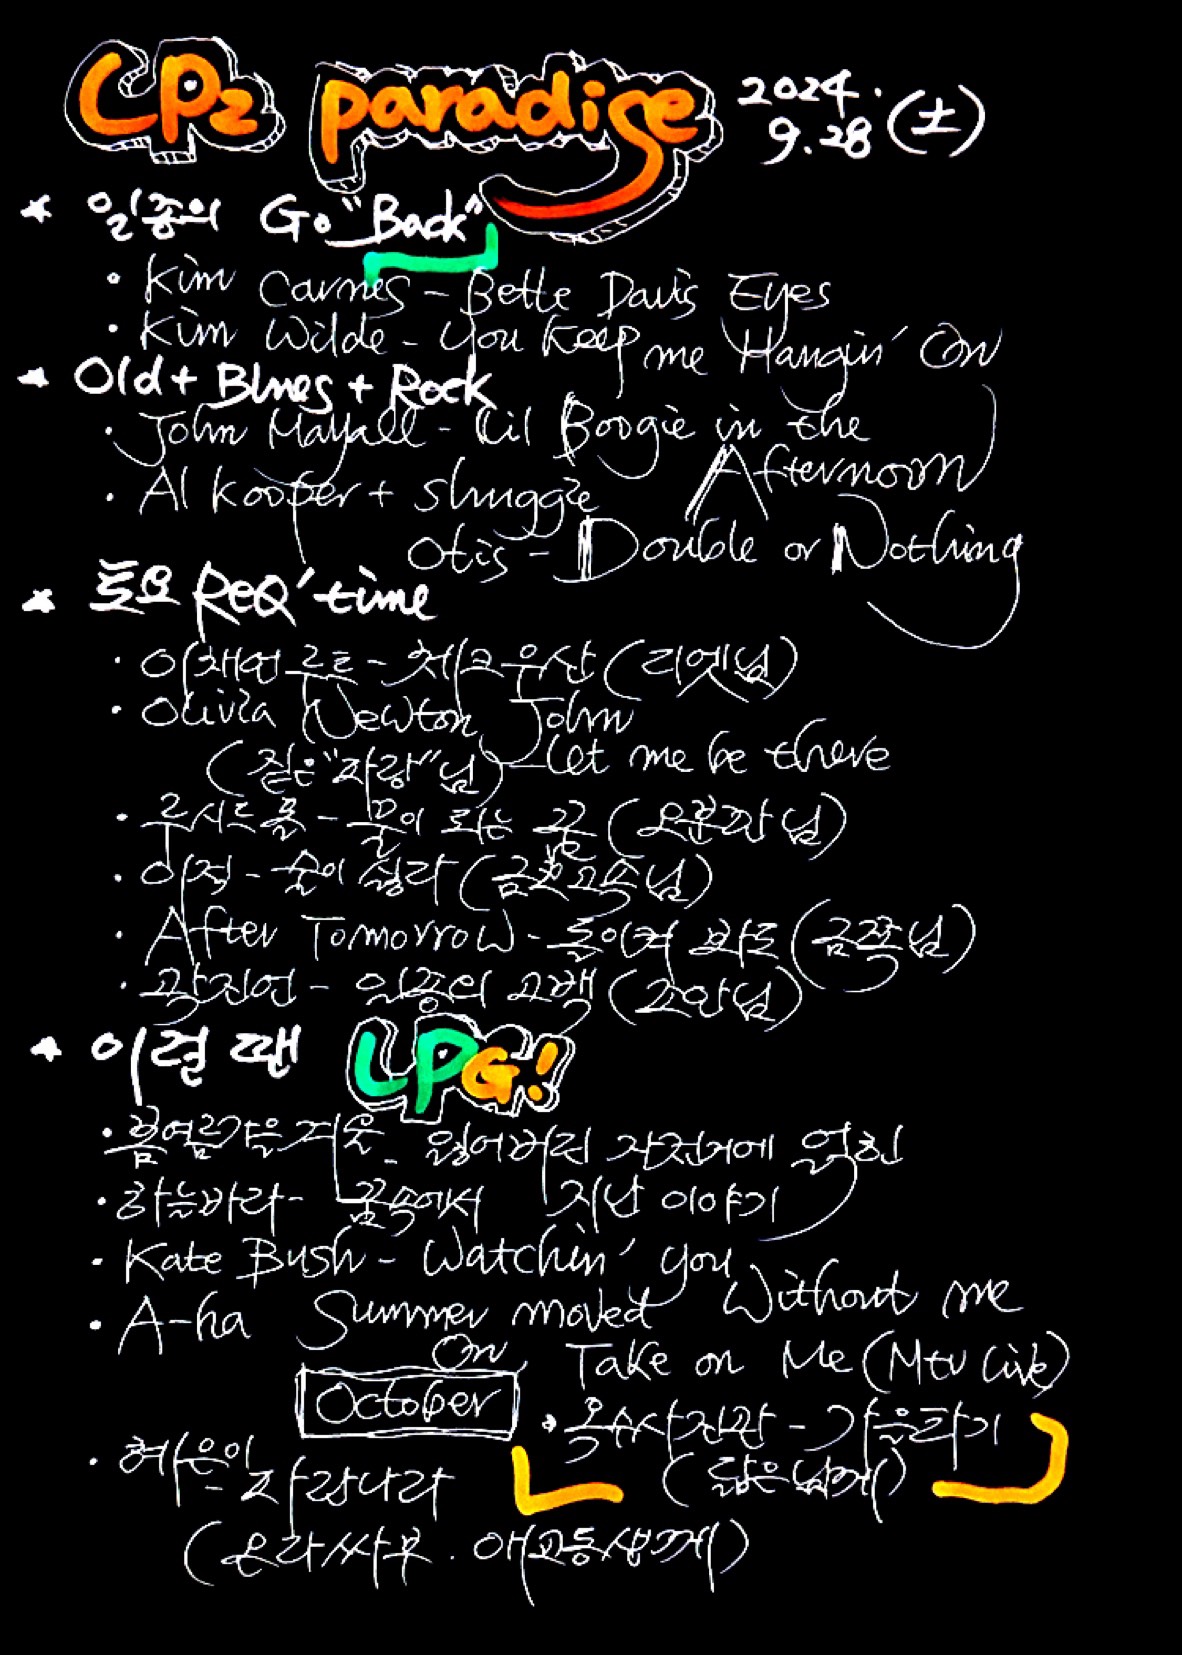 CPz paradise 2024.
9.28 (土)
★ 일종의 Go "Back"
• Kim Carnes - Bette Davis Eyes
• Kim Wilde - You Keep me Hangin' On
★ Old + Blues + Rock
• John Mayall - Lil Boogie in the
Afternoon
• Al Kooper + Shuggie
Otis - Double or Nothing
★ 토요 ReQ' time
• 이채언루트 - 체크우산 (리엣님)
• Olivia Newton John
(젊은"자랑"님) - Let me be there
• 루시드폴 - 꿈이 되는 꿈 (님)
• 이적 - 숨이 (금고속님)
• After Tomorrow - 돌이켜 봐도 (금작님)
• 곽진언 - 일종의 고백 (조안님)
★ 이럴 땐 LPG!
• 봄여름가을겨울 - 잃어버린 자전거에 얽힌
지난 이야기
• 하늘바라 - 꿈속에서
• Kate Bush - Watchin' you
Without me
• A-ha Summer moved
On, Take on Me (Mtv Live)
October
• 옥수사진관 - 가을타기
(닮은님께)
• 허은이 - 사랑나라
(온라싸우. 애교동생께)